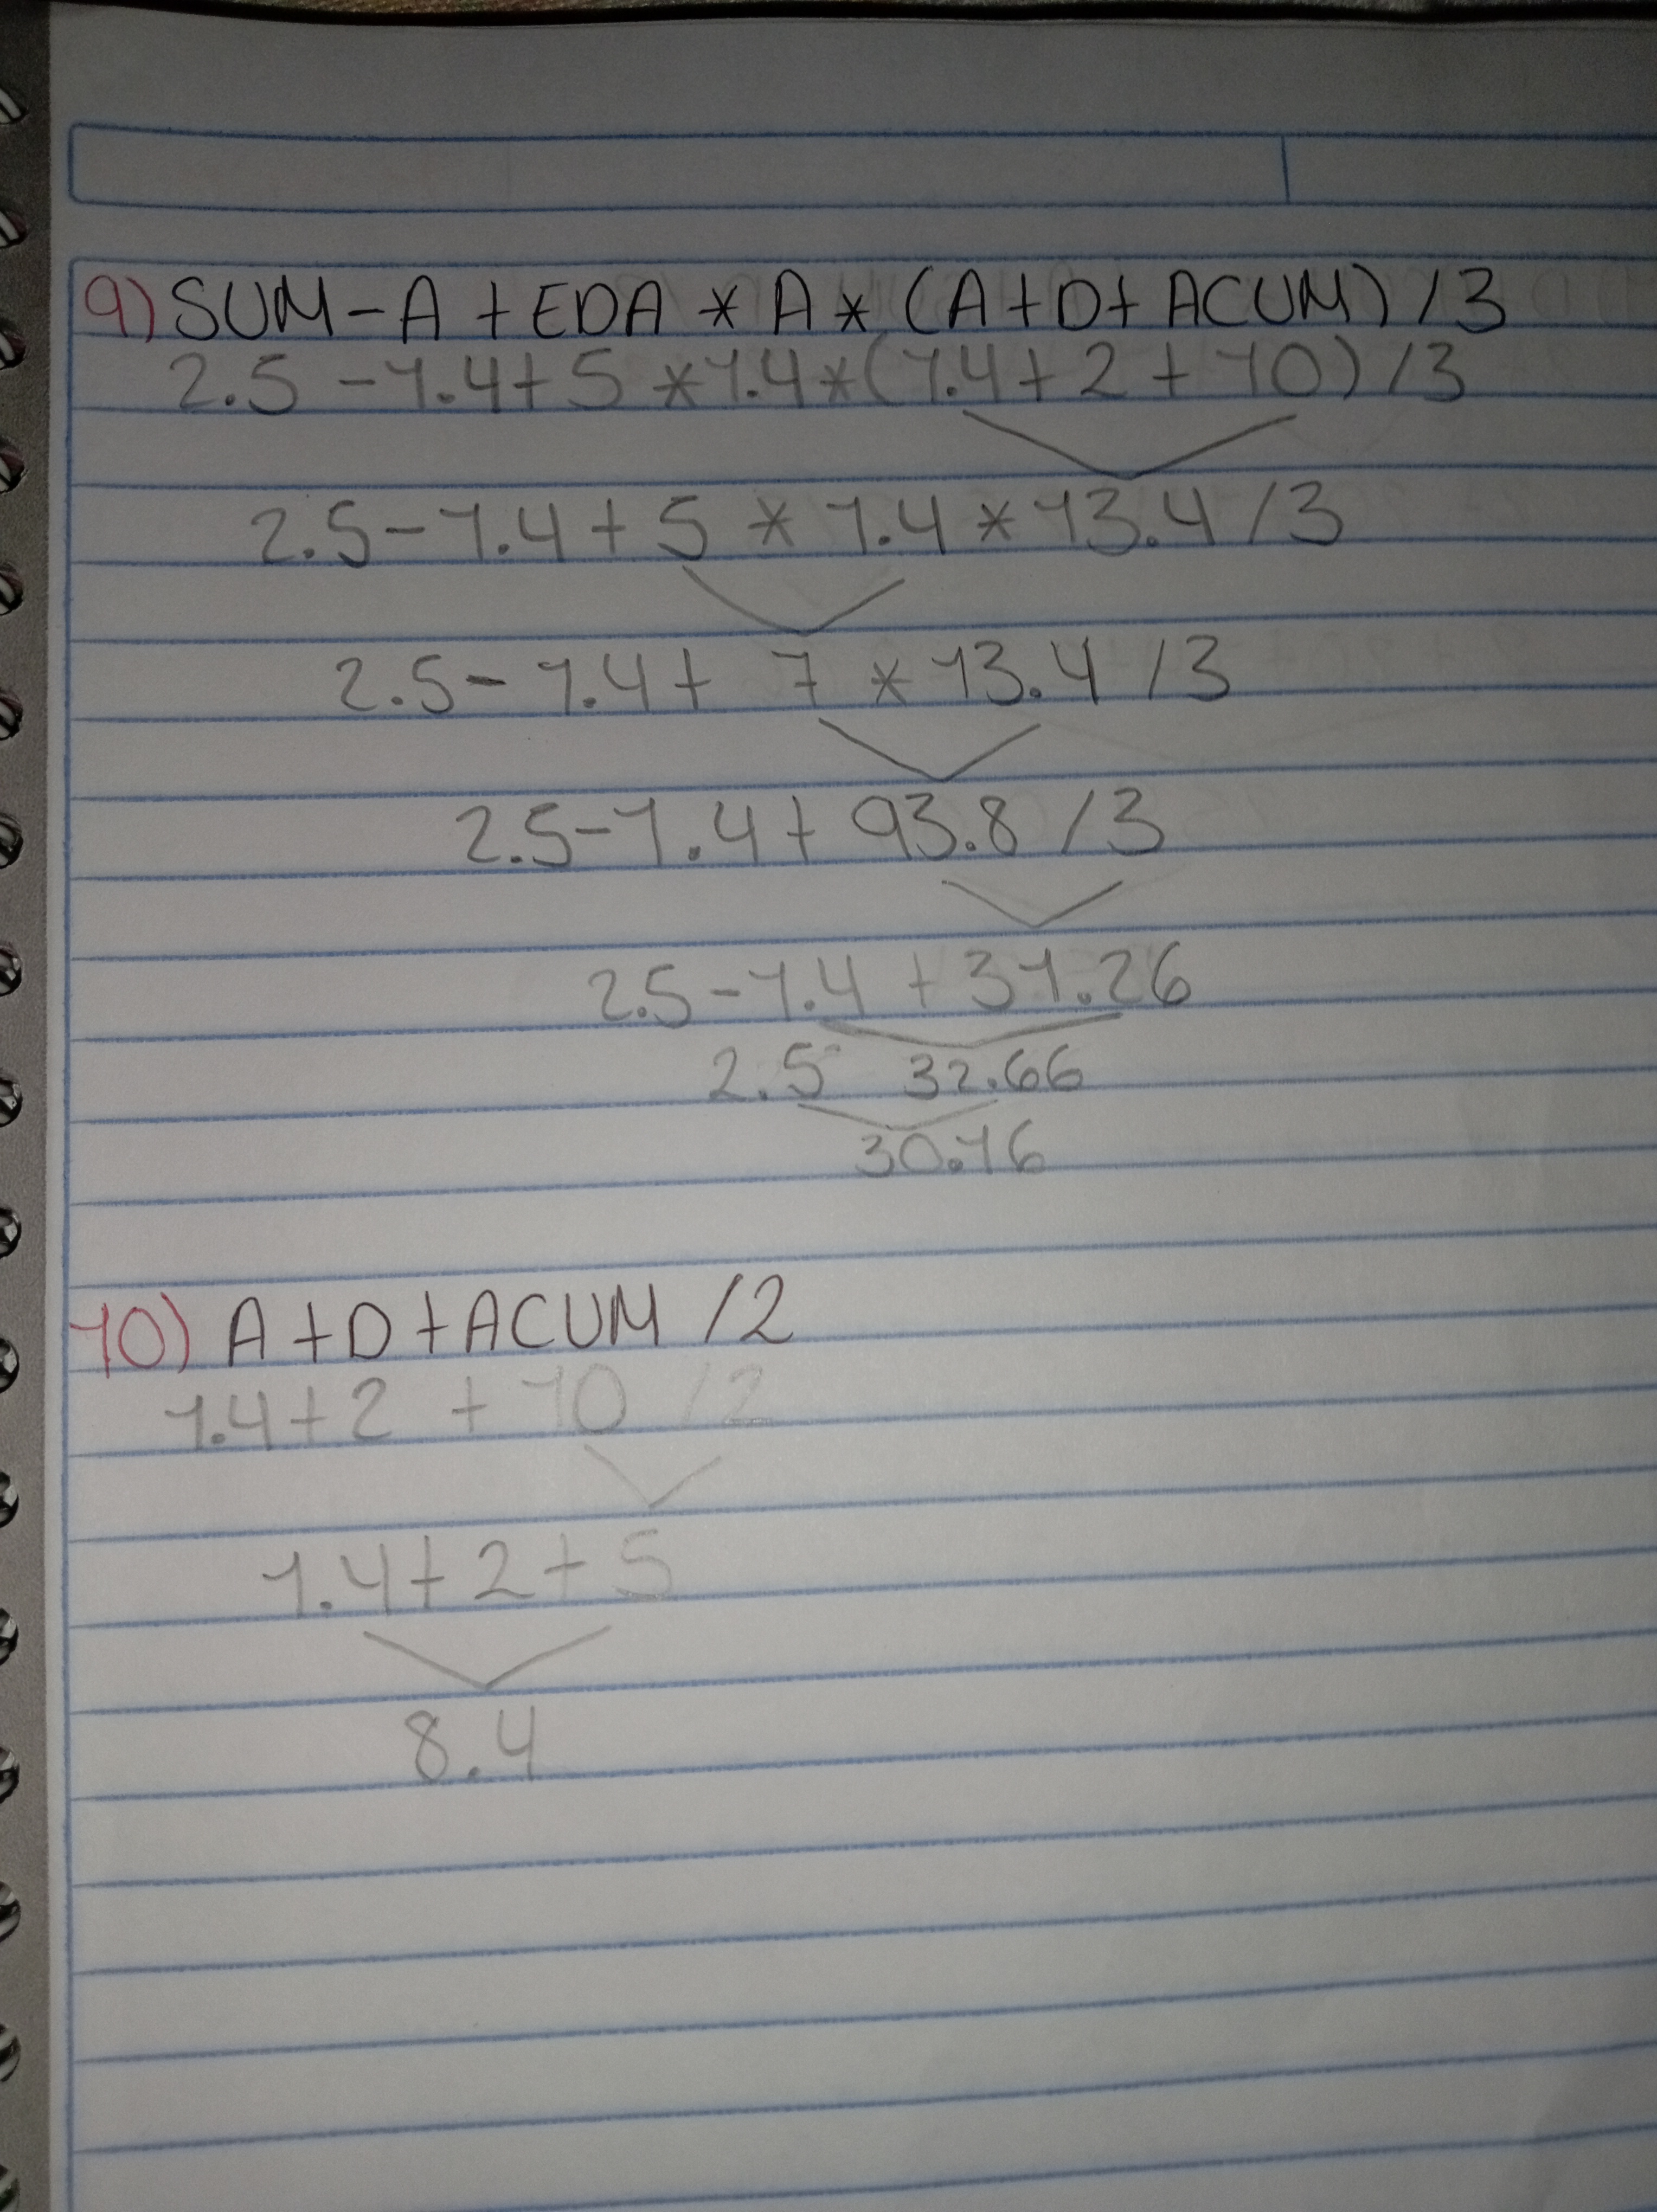 9) SUM-A+EDA*A*(A+D+ACUM)/3
2.5-1.4+5*1.4*(1.4+2+10)/3
2.5-1.4+5*1.4*13.4/3
2.5-1.4+7*13.4/3
2.5-1.4+93.8/3
2.5-1.4+31.26
2.5 32.66
30.16
10) A+D+ACUM/2
1.4+2+10/2
1.4+2+5
8.4